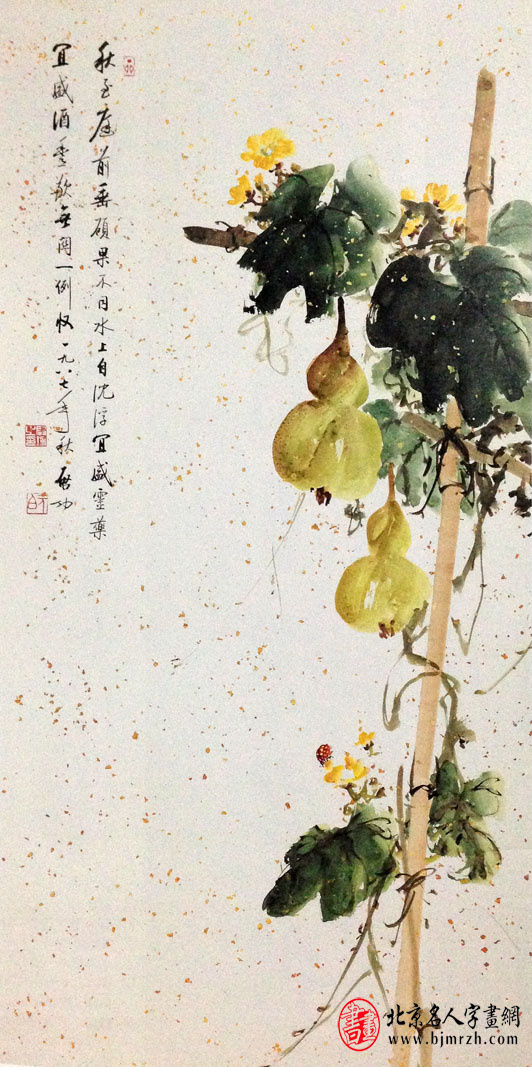 秋至庭前垂碩果不同水上自沈浮宜盛靈藥
宜盛酒壺歡無用一例收一九八七年秋啟功
北京名人字畫網
www.bjmrzh.com